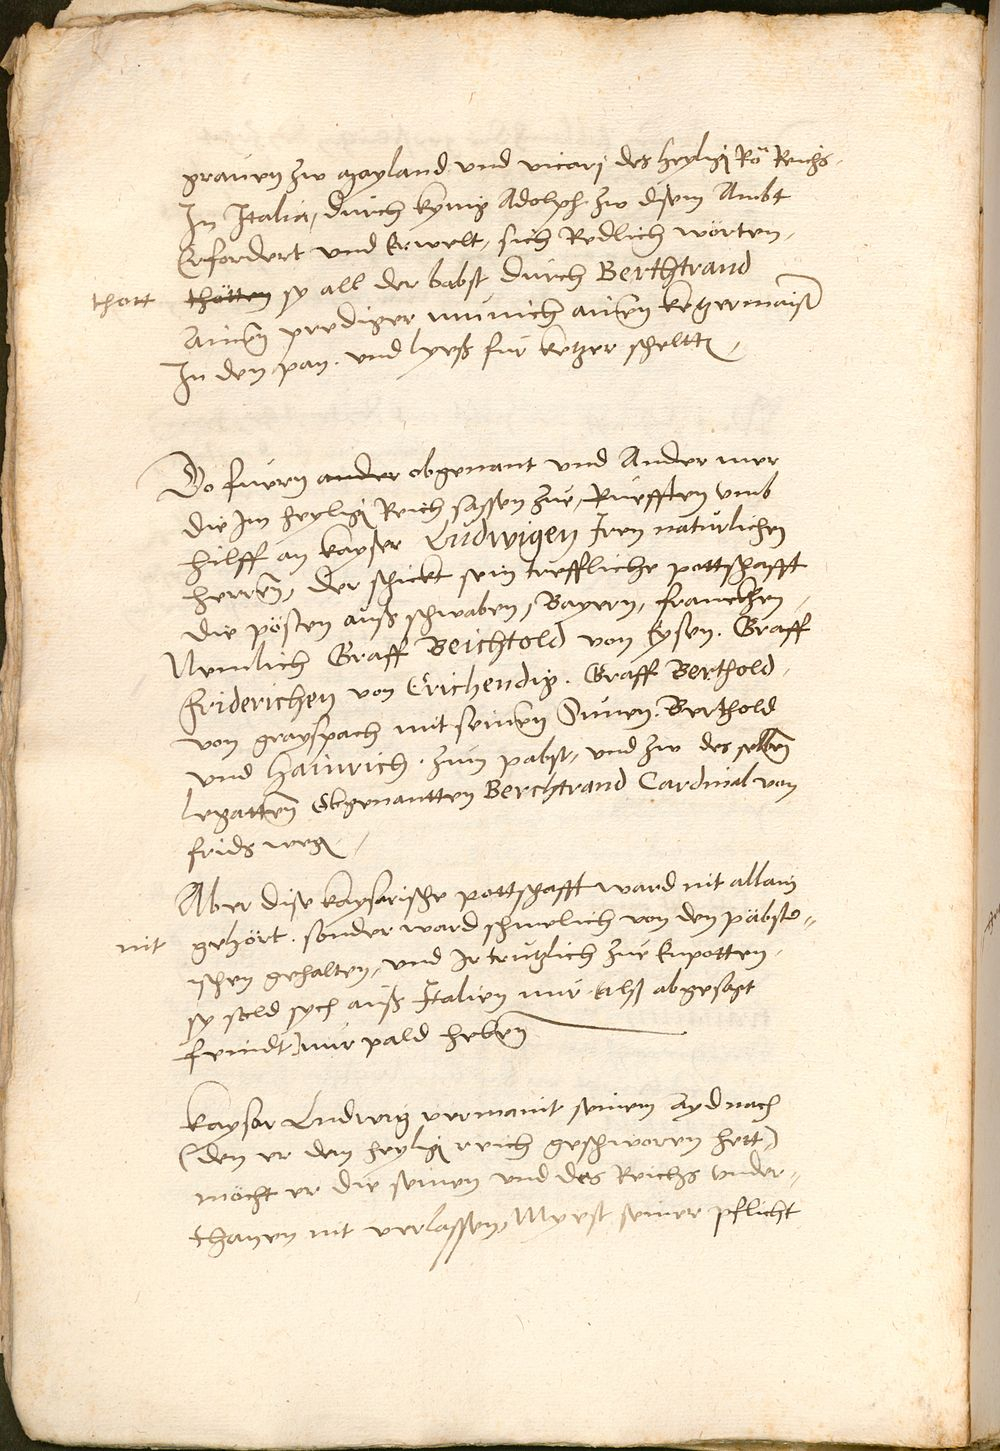 grauen zw Mayland und vicarj des heylig Rö Reichs.
In Italia, durch kynig Adolph. zw disem Ambt
Erfordert und Erwelt, sich Redlich wörten,
thett thötten sy all der babst durch Berthtrand
Ainen prediger münich ainen ketzermaist
In den pan. und lyeß für ketzer scheltt,
Do fueren ander obgenant und Ander mer
die Im heylig Reich sassen zue, Ruefften umb
hilff an kayser Ludwigen Iren natürlichen
herren, der schickt sein treffliche pottschafft
die pösten auß schwaben, Bayern, francken,
Nemlich Graff Beichtold von Eysen. Graff
Friderichen von Trichendig. Graff Berthold,
von grayspach mit seinen Sunen. Berthold
und Hainrich. zum pabst, und zw des selben
legatten Obgenantten Berchtrand Cardinal von
frids weg,
Aber dise kayserische pottschafft ward nit allain
nit gehört. sonder ward schmelich von den päbst=
ischen gehalten, und Ir trutzlich zue Enpotten,
sy sold sych auß Italien nur Alß abgesagt
feindt nur pald heben
kayser Ludwig vermaint seinem Ayd nach
(den er dem heylig reich geschworen hett)
möcht er die seinen und des Reichs under=
thanen nit verlassen, Myest seiner pflicht